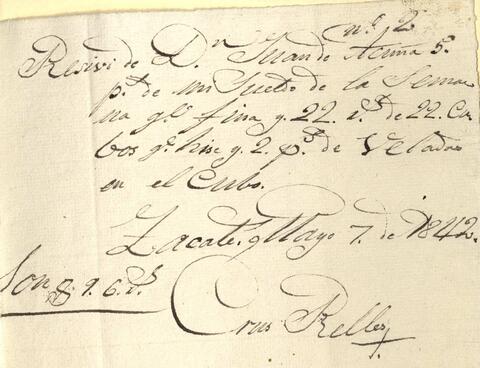 n.º 2
Resivi de D.n Juan de Acuña 5.
p.s de mi Sueldo de la Sema
na q.e fina y 22. r.s de 22. Cu
bos q.e hise y 2. p.s de Veladas
en el Cubo.
Zacate.s Mayo 7. de 1842.
Son 9. 6. r.s
Crus Relles